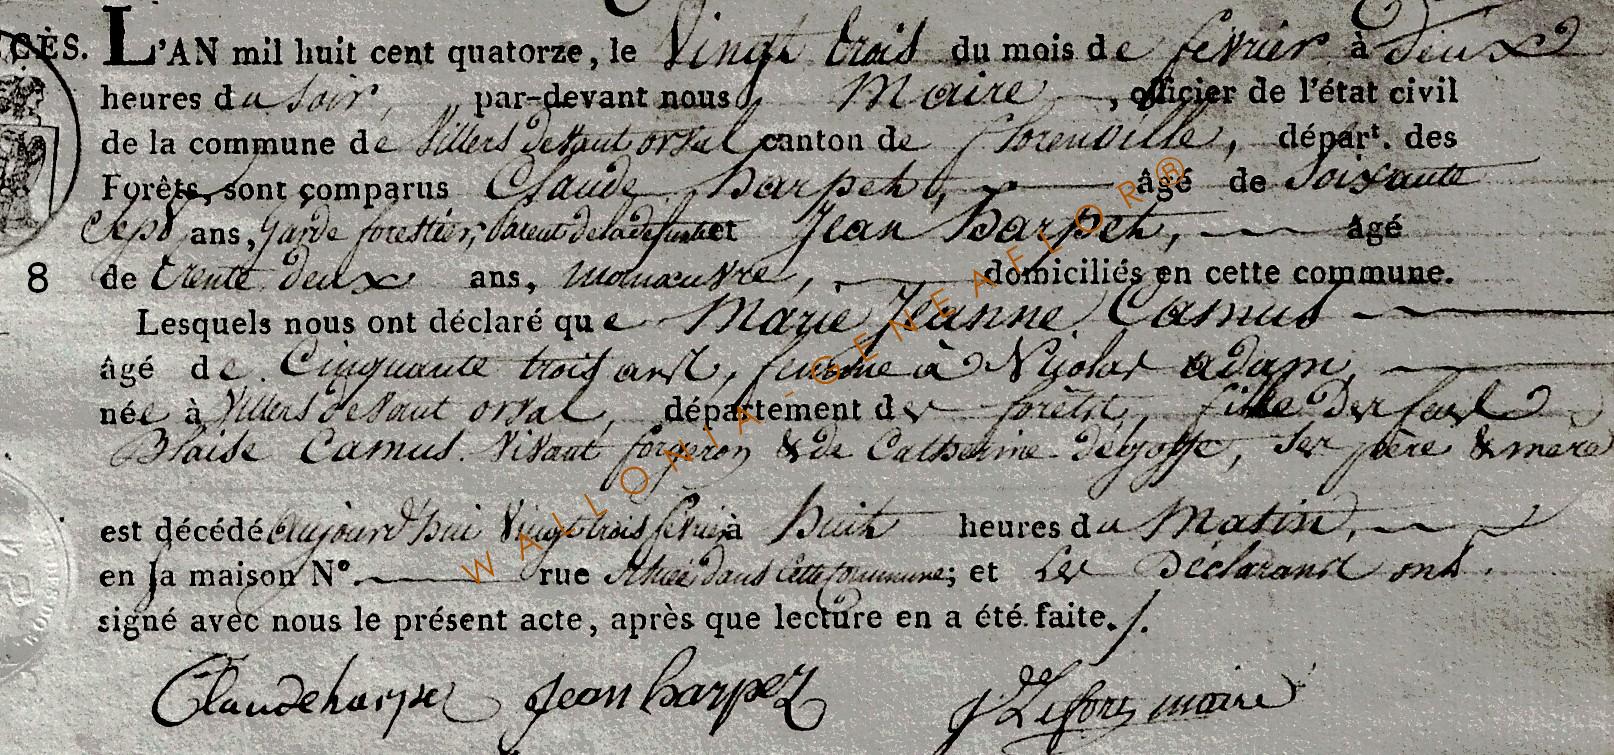 CÈS. L'AN mil huit cent quatorze, le vingt trois du mois de fevrier à deux
heures du soir, par-devant nous Maire, officier de l'état civil
de la commune de Villers devant orval canton de florenville, départ. des
Forêts, sont comparus Claude harpet, âgé de Soixante
Sept ans, garde forestier, parent de la defunte et Jean harpet, âgé
8 de trente deux ans, manoeuvre, domiciliés en cette commune.
Lesquels nous ont déclaré que Marie Jeanne Camus
âgé de Cinquante trois ans, femme à Nicolas adam
née à Villers devant orval, département des forêts, fille des feus
Blaise Camus vivant forgeron & de Catherine ses père & mère
est décédé aujourd'hui vingt trois fevrier à huit heures du Matin,
en sa maison N°. rue située dans cette commune; et Les Déclarans ont
signé avec nous le présent acte, après que lecture en a été faite./.
Claude harpet Jean harpez maire
WALLONIA-GENEAFLOR®